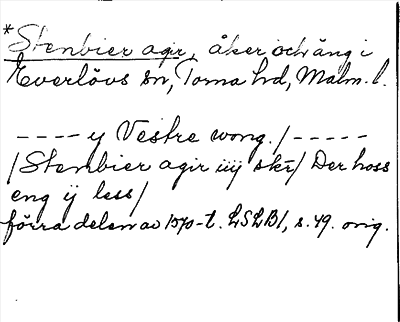 *Stenbier agir, åker och äng i
Everlövs sn, Torna hd, Malm. l.
---- y Vestre wong. /-----
/Stenbier agir iiij skr/ Der hoss
eng ij less/
förra delen av 1570-t. LSLB1, s. 49. orig.